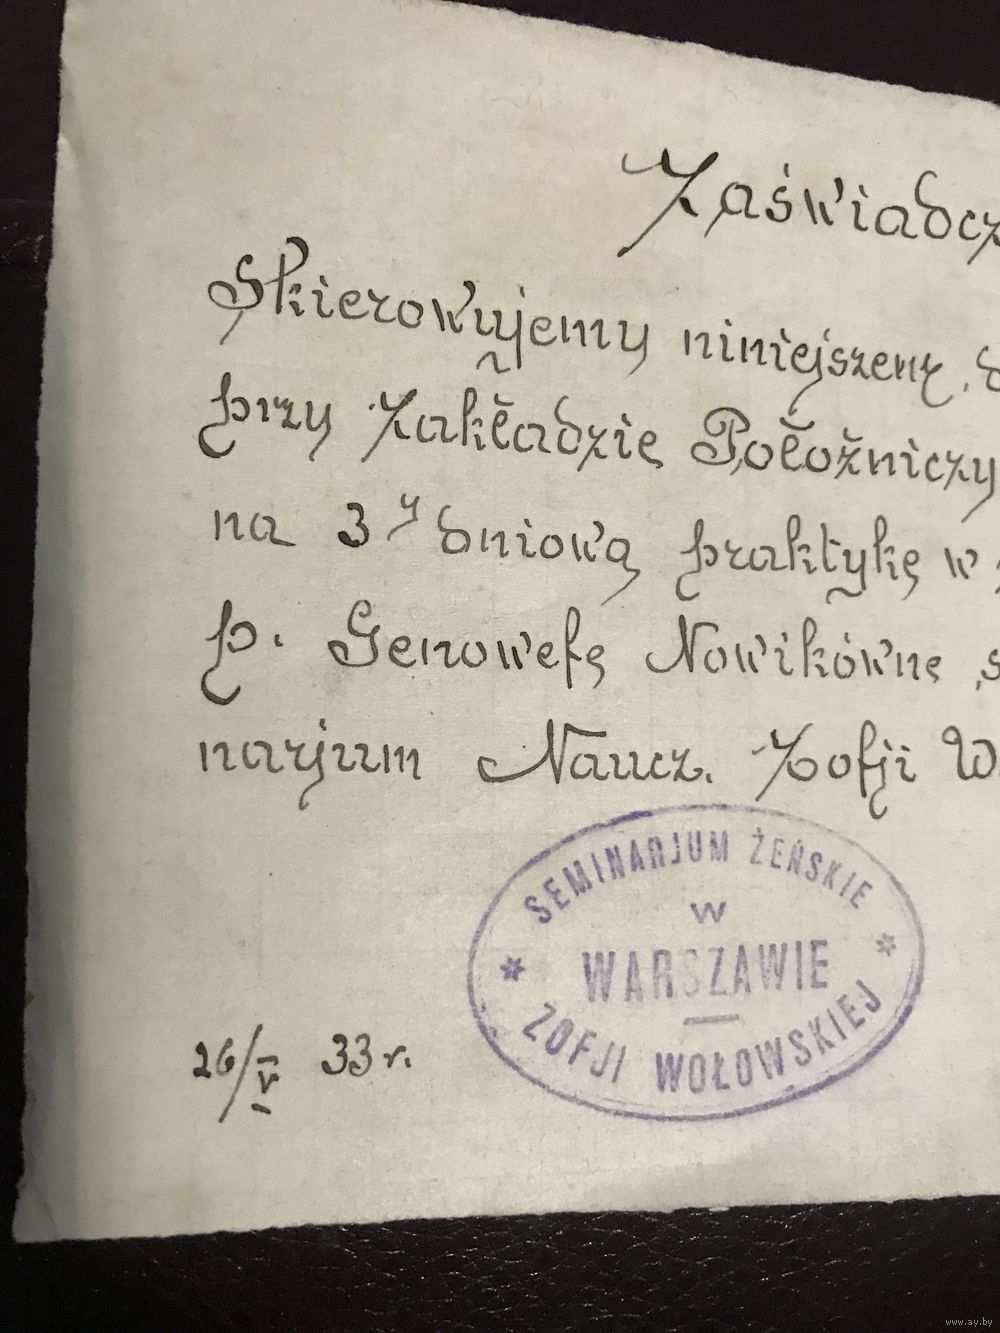 Zaświadcz
Skierowujemy niniejszem, d
przy Zakładzie Położniczy
na 3y dniową praktykę w
p. Genowefę Nowikównę, s
narjum Naucz. Zofji W
SEMINARJUM ŻEŃSKIE
w
WARSZAWIE
ZOFJI WOŁOWSKIEJ
26/V 33 r.
www.ay.by